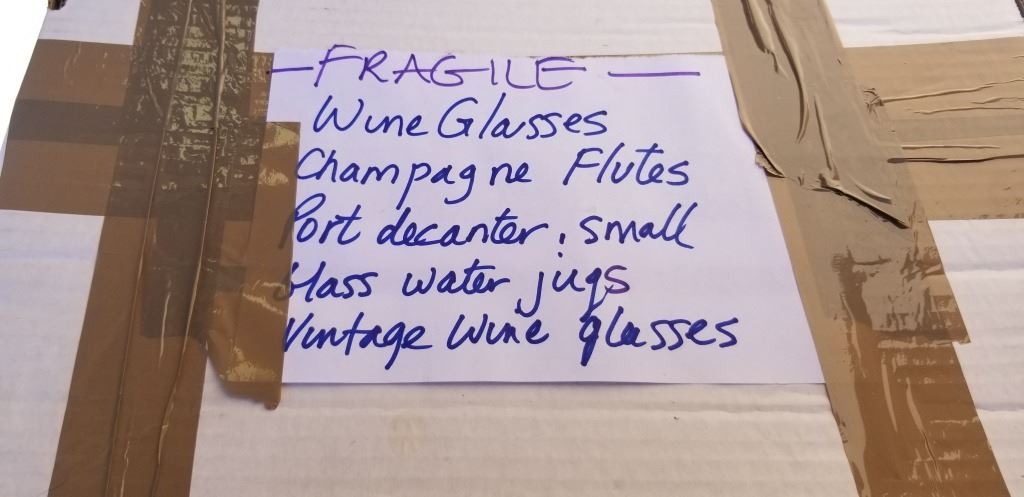 — FRAGILE —
Wine Glasses
Champagne Flutes
Port decanter, small
Glass water jugs
Vintage Wine glasses